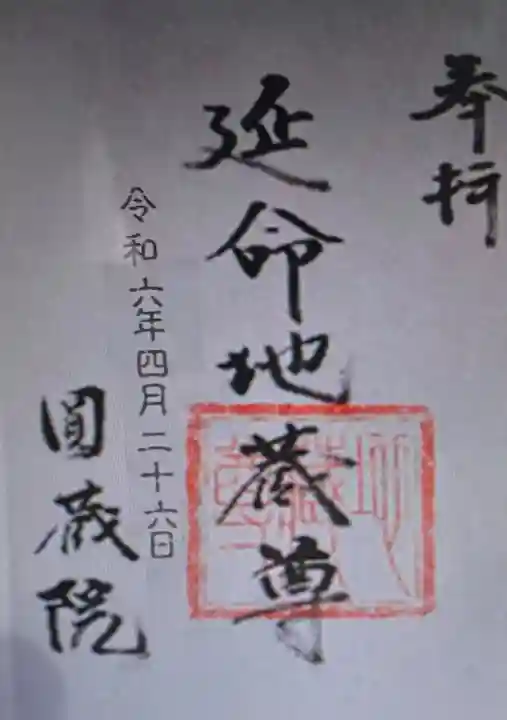 奉拝
延命地蔵尊
令和六年四月二十六日
圓蔵院